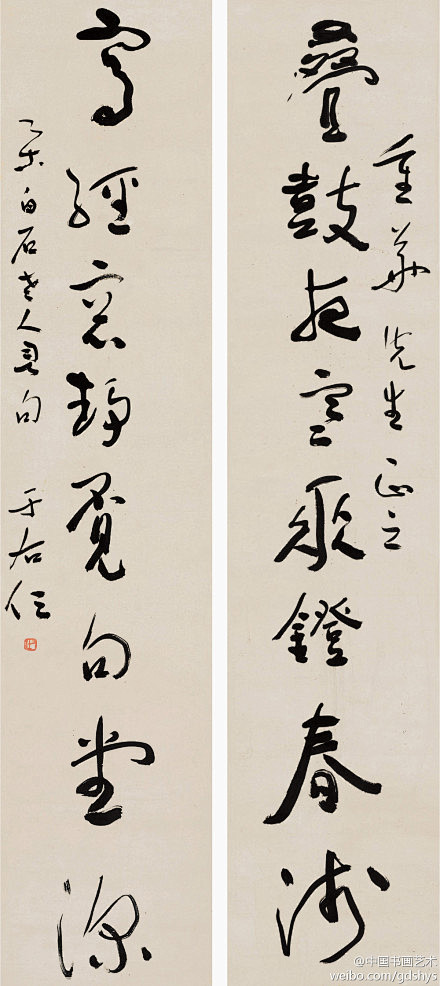 重華先生正之
疊鼓夜寒垂鐙春淺
寫經窗静覓句堂深
集白石老人詞句 于右任
@中国书画艺术
weibo.com/gdshys